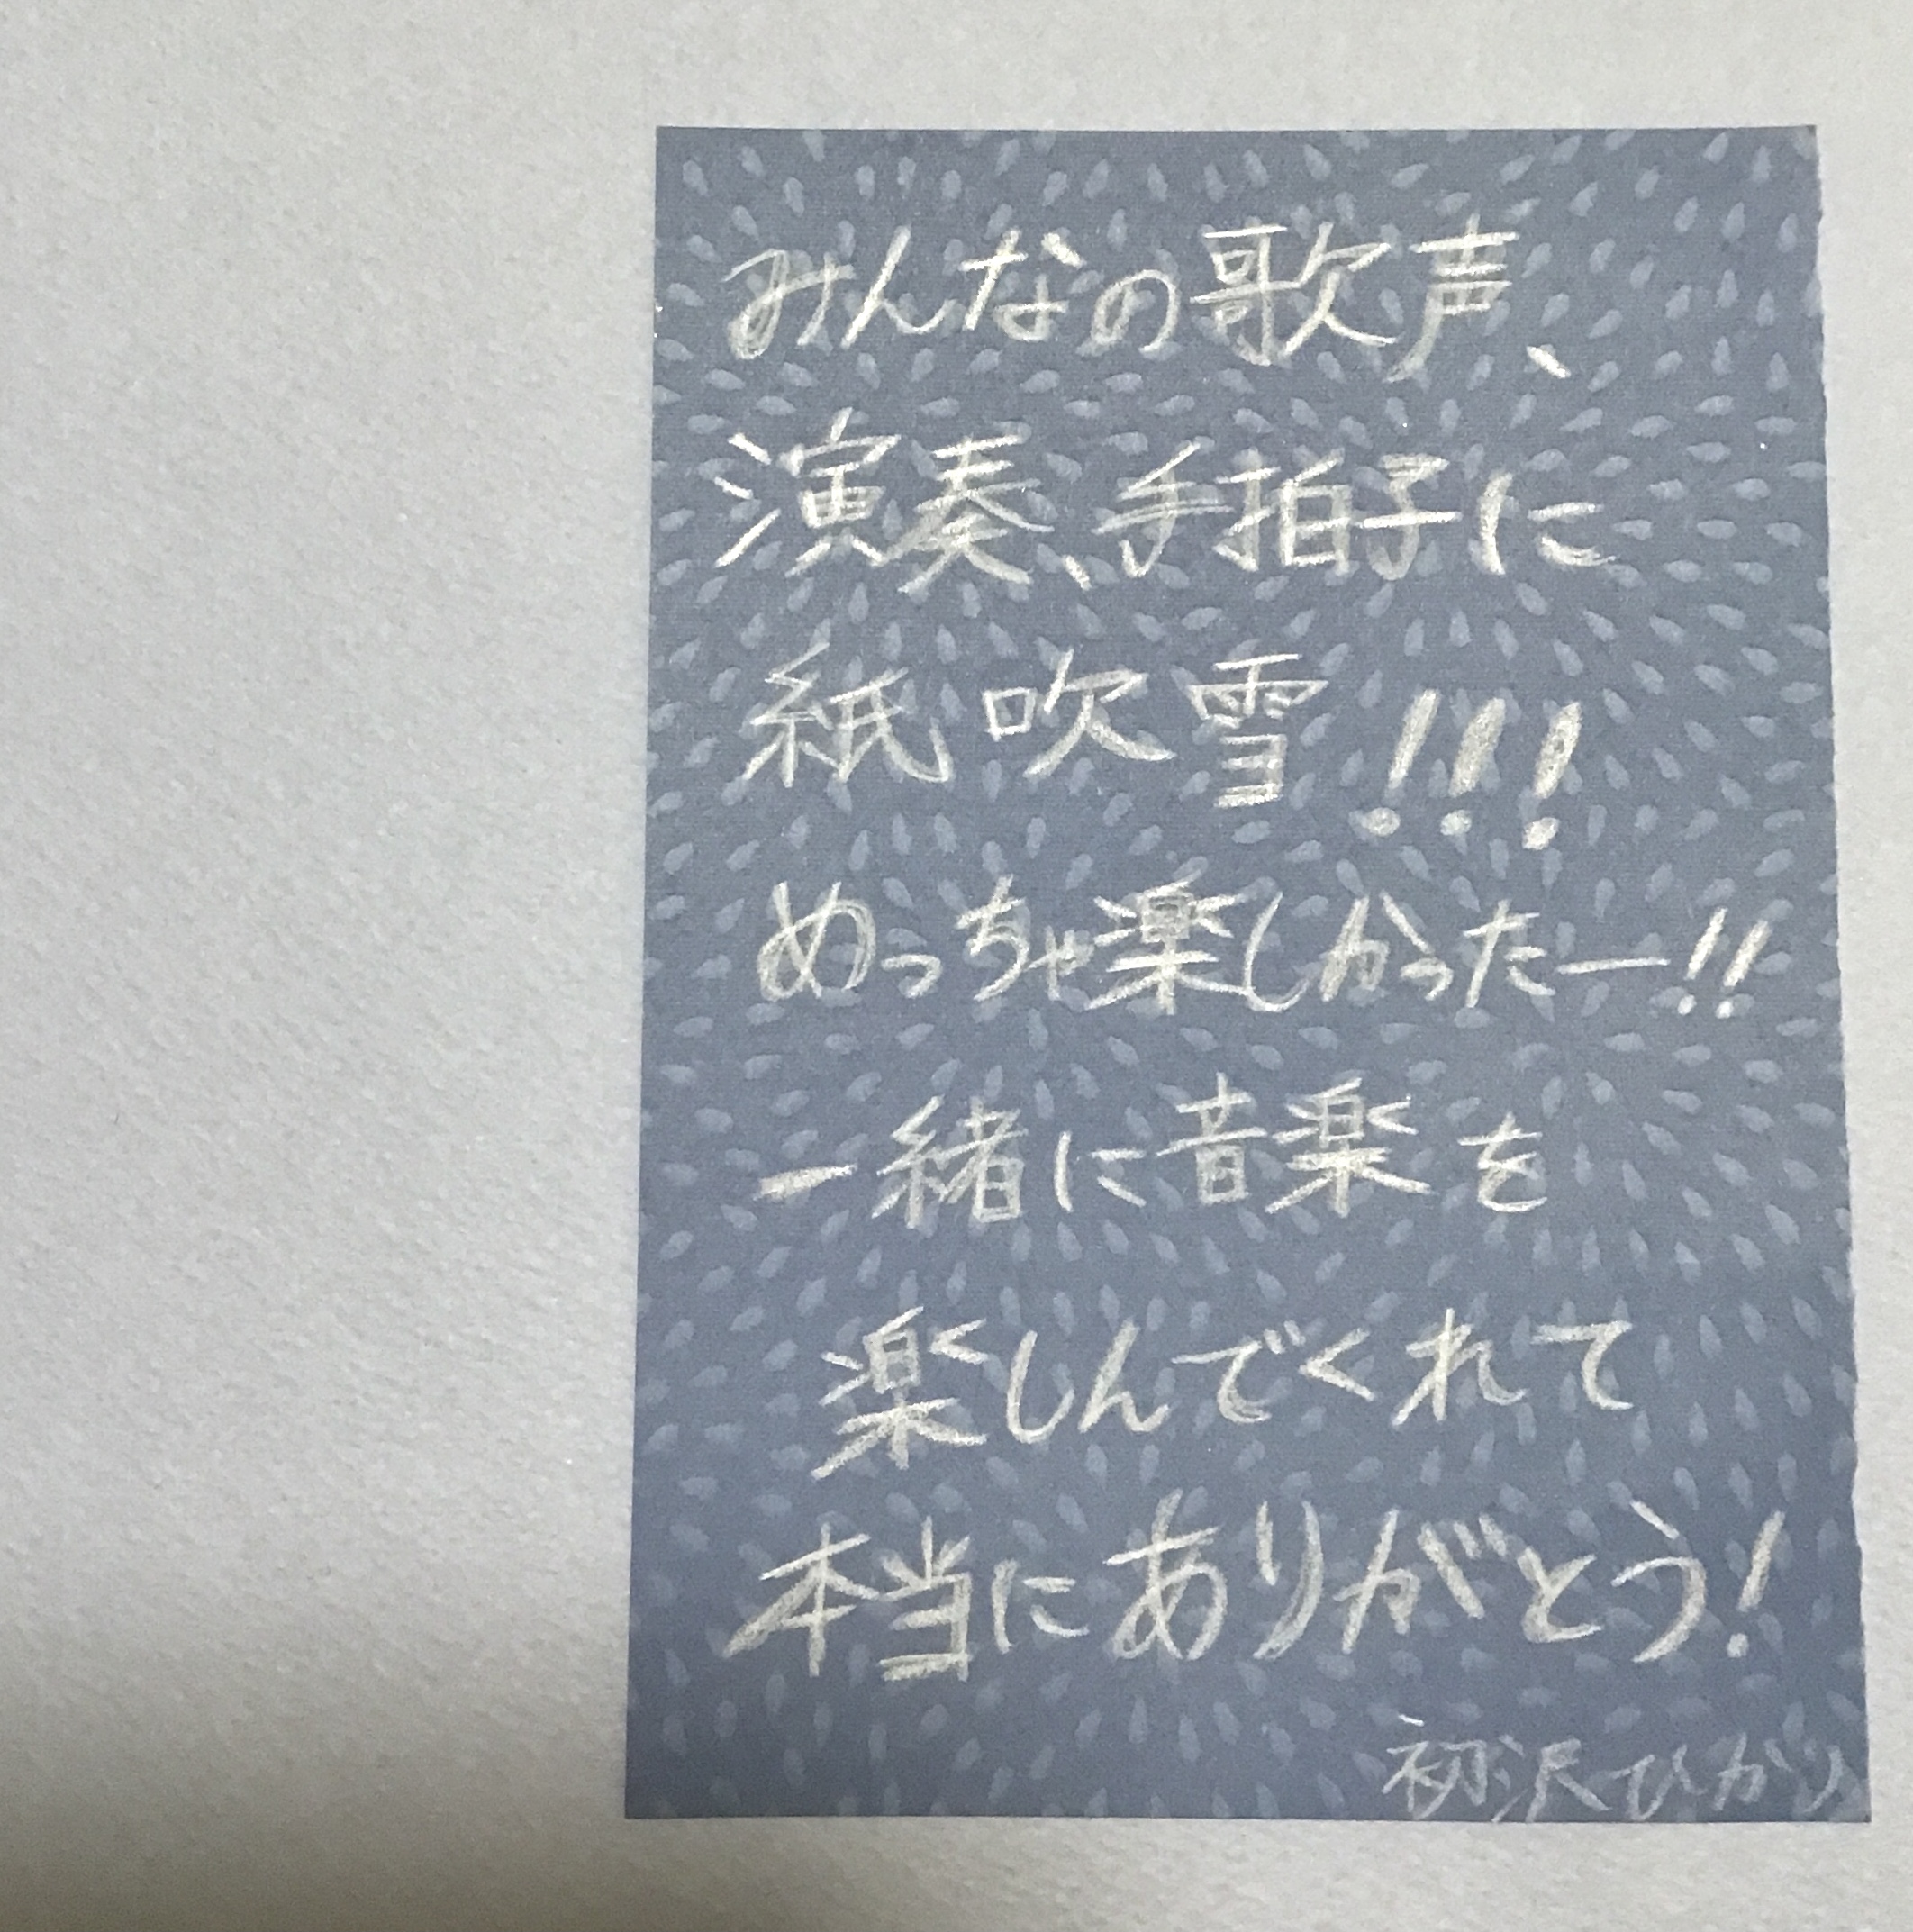 みんなの歌声、
演奏、手拍子に
紙吹雪!!!
めっちゃ楽しかったー!!
一緒に音楽を
楽しんでくれて
本当にありがとう!
初沢ひかり